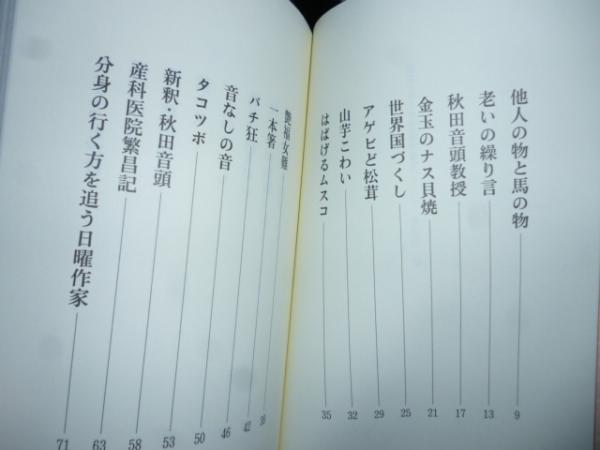 他人の物と馬の物 9
老いの繰り言 13
秋田音頭教授 17
金玉のナス貝焼 21
世界国づくし 25
アケビと松茸 29
山芋こわい 32
はばけるムスコ 35
艶福女難 39
一本箸
バチ狂 42
音なしの音 46
タコツボ 50
新釈・秋田音頭 53
産科医院繁昌記 58
分身の行く方を追う日曜作家 63
71